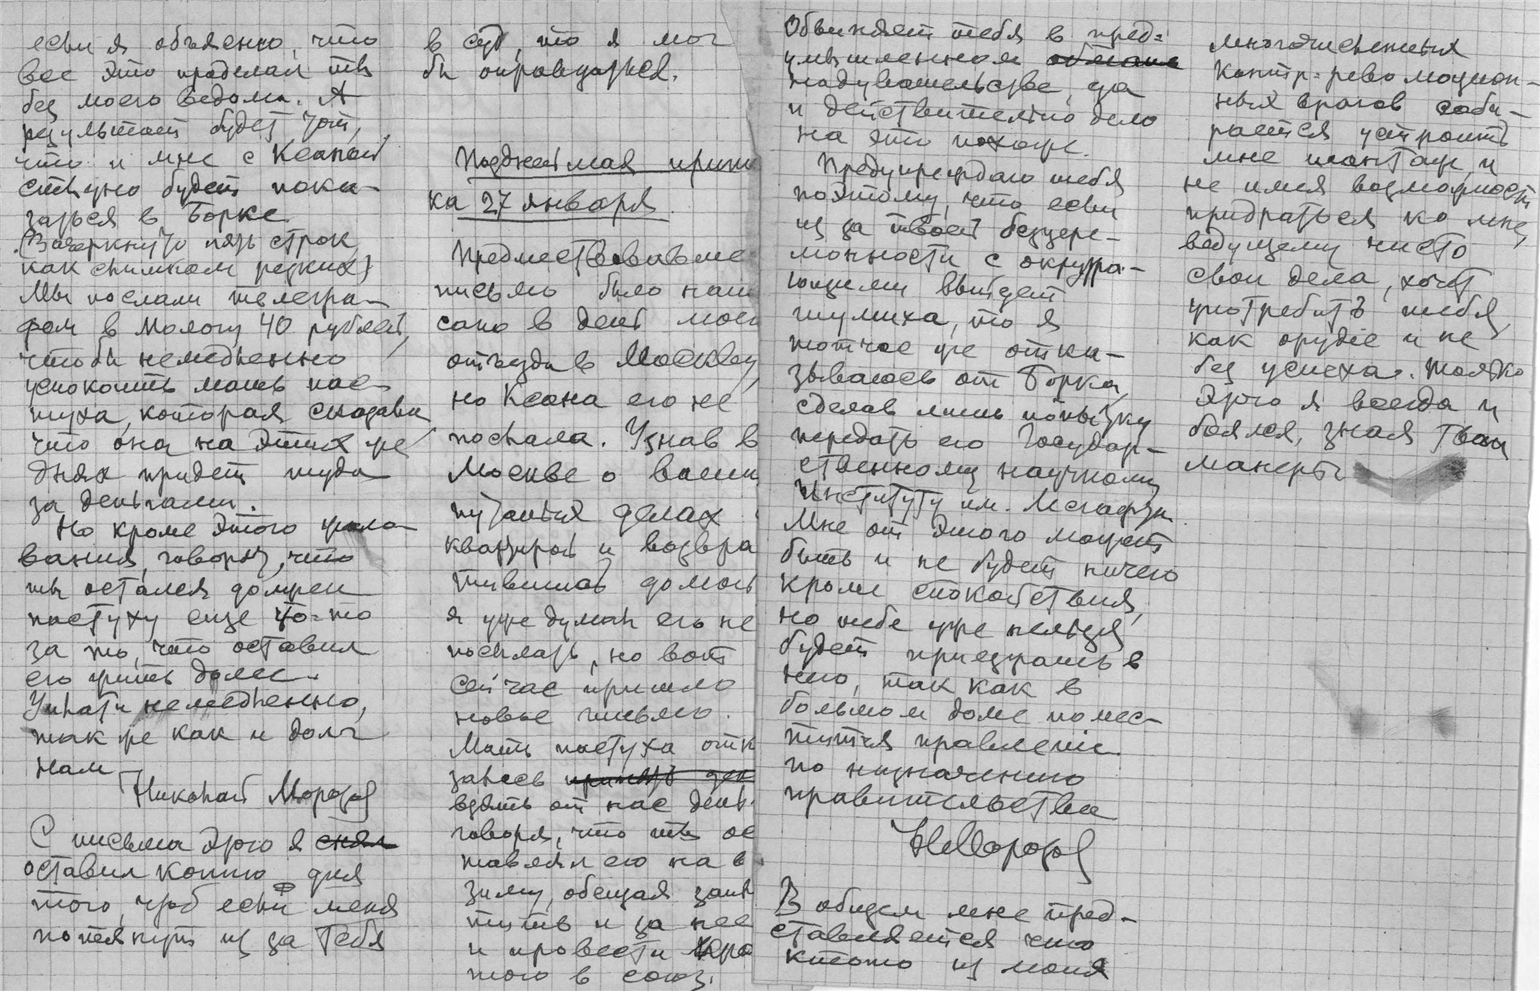 если я объясню, что
все это проделал ты
без моего ведома. А
результат будет тот,
что и мне с Ксаной
стыдно будет пока-
заться в Борке
(Зачеркнуто пять строк,
как слишком резких)
Мы послали телегра-
фом в Мологу 40 рублей,
чтобы немедленно
успокоить мать пас-
туха, которая сказала,
что она на этих же
днях придет туда
за деньгами.
Но кроме этого жало-
вания, говорят, что
ты остался должен
пастуху еще что-то
за то, что оставил
его жить долее.
Уплати немедленно,
так же как и долг
нам
Николай Морозов
С письма этого я снял
оставил копию для
того, чтоб если меня
потянут из за тебя
в суд, то я мог
бы оправдаться.
Позднейшая припи
ка 27 января
Предшествовавшее
письмо было напи
сано в день моего
отъезда в Москву,
но Ксана его не
послала. Узнав в
Москве о ваших
путаных делах с
квартирой и возвра
тившись домой
я уже думал его не
посылать, но вот
сейчас пришло
новое письмо.
Мать пастуха отк
залась принять ден
взять от нас день
говоря, что ты ос
тавлял его на в
зиму, обещая запл
тить и за нее
и провести кро
того в союз.
Обвиняет тебя в пред-
умышленном обмане
надувательстве, да
и действительно дело
на это похоже.
Предупреждаю тебя
поэтому, что если
из за твоей бесцере-
монности с окружа-
ющими выйдет
шумиха, то я
тотчас же отка-
зываюсь от Борка,
сделав лишь попытку
передать его Государ-
ственному научному
Институту им. Лесгафта.
Мне от этого может
быть и не будет ничего
кроме спокойствия,
но тебе уже нельзя
будет приезжать в
него, так как в
большом доме помес-
тится правление
по назначению
правительства
Н Морозов
В общем мне пред-
ставляется что
ктото из моих
многочисленных
контр-революцион-
ных врагов соби-
рается устроить
мне шантаж, и
не имея возможности
придраться ко мне,
ведущему чисто
свои дела, хочет
употребить тебя,
как орудие и не
без успеха. Только
этого я всегда и
боялся, зная твои
манеры